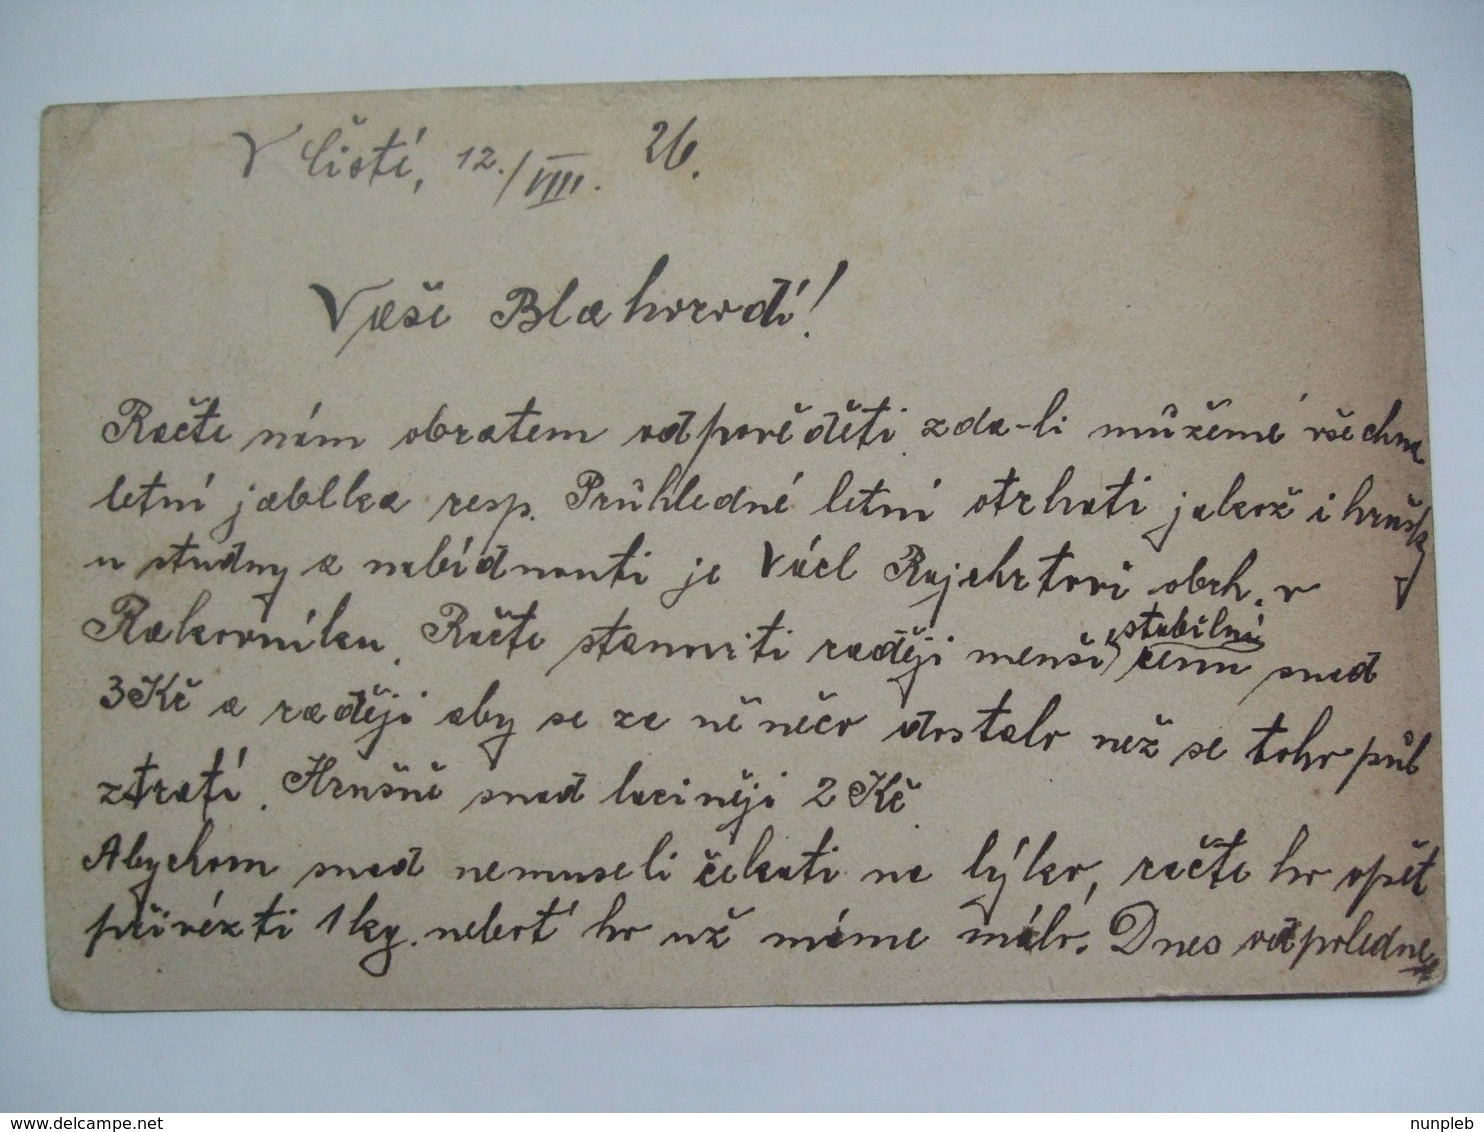 V Čisté, 12./VIII. 26.
Vaše Blahorodí!
Račte nám obratem odpověděti zda-li můžeme všechna
letní jablka resp. Průhledné letní otrhati jakož i hrušky
u studny a nabídnouti je Václ Rajchrtovi obch. v
Rakovníku. Račte stanoviti raději menší stabilní cenu snad
3 Kč a raději aby se za ně něco dostalo než se toho půl
ztratí. Hrušně snad laciněji 2 Kč.
Abychom snad nemuseli čekati na lýko, račte ho opět
přivézti 1 kg. neboť ho už máme málo. Dnes odpoledne
www.delcampe.net
nunpleb